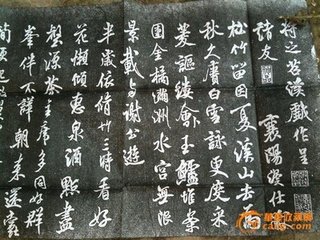 將之苕溪戲作呈
諸友
襄陽漫仕
松竹留因夏溪山去為
秋久賡白雪詠更度采
菱謳縷會玉鱸堆案
團金橘滿洲水宮無限
景載與謝公遊
半歲依脩竹三時看好
花懶傾惠泉酒點盡
壑源茶主席多同好群
峯伴不譁朝來還蠹
簡便起
华夏收藏网